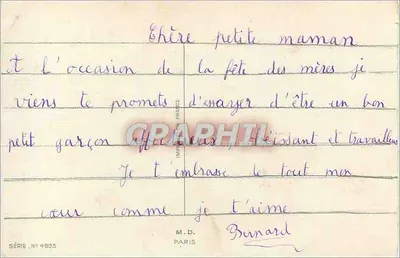 Chère petite maman
A l'occasion de la fête des mères je
viens te promets d'essayer d'être un bon
petit garçon affectueux obéissant et travailleur
Je t'embrasse de tout mon
cœur comme je t'aime
Bernard
CPARPHIL
SÉRIE. N° 4925
M.D.
PARIS
FRANCE